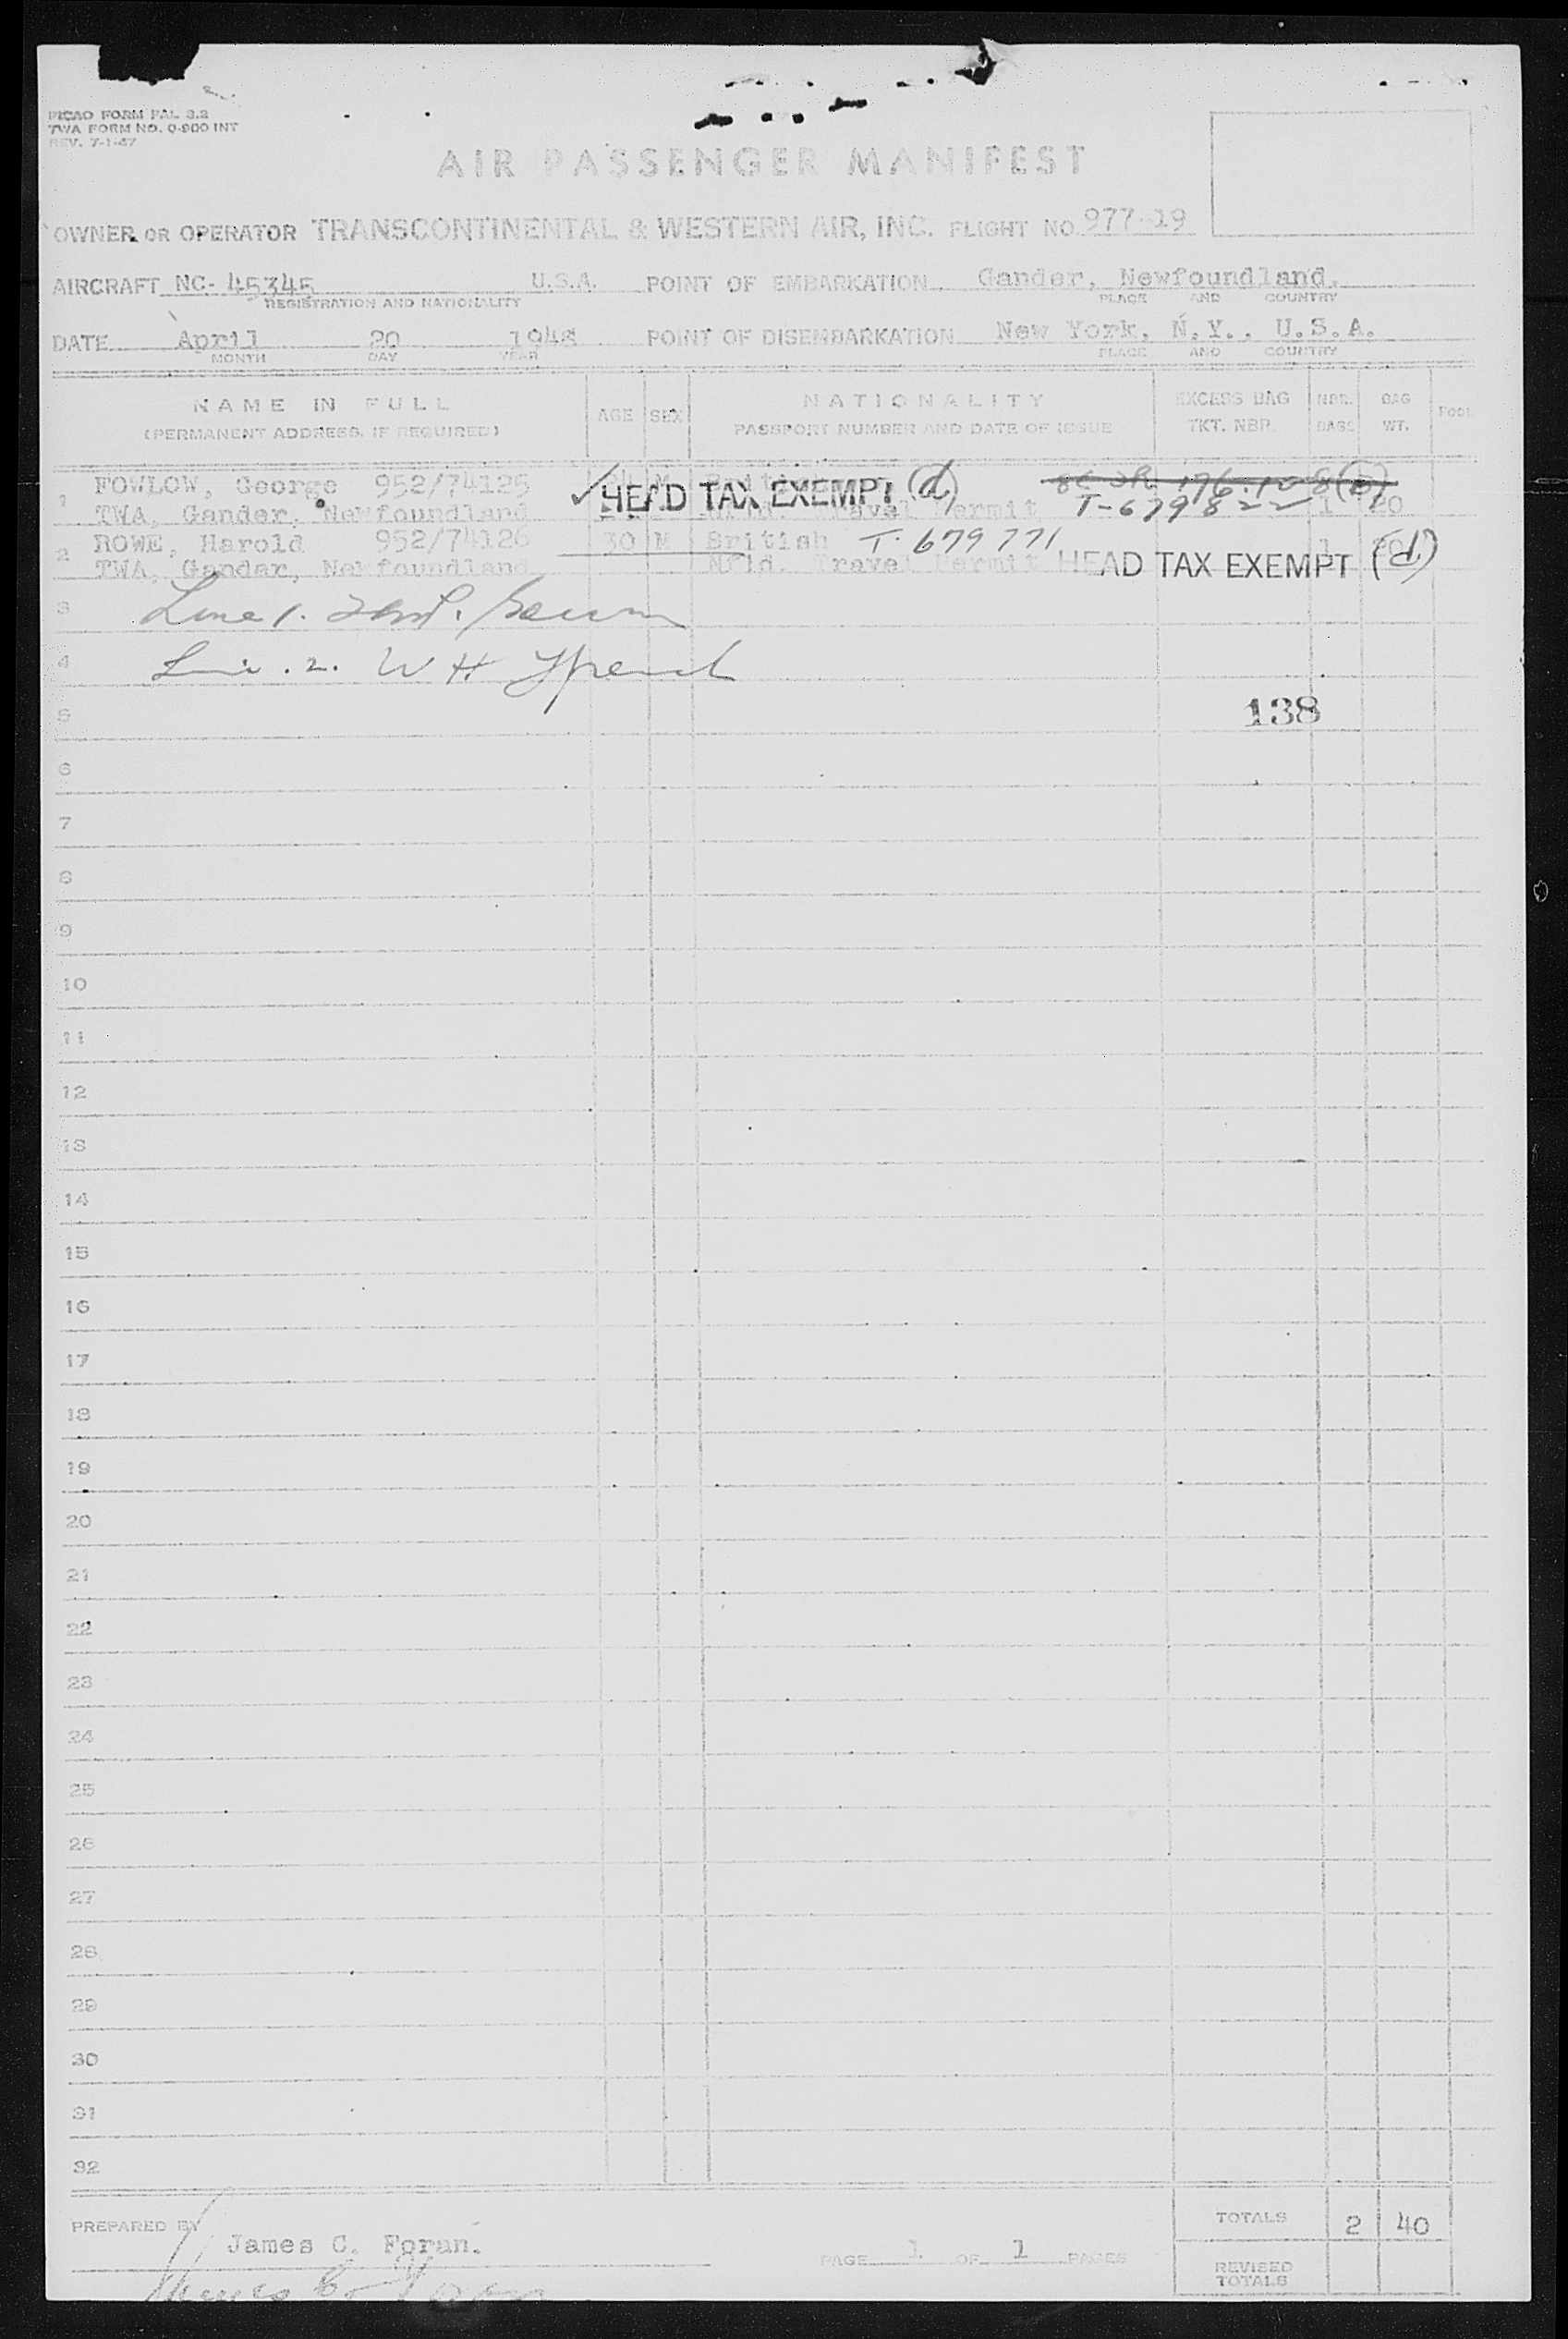 PICAO FORM PAL 3.2
TWA FORM NO. O-900 INT
REV. 7-1-47
AIR PASSENGER MANIFEST
OWNER OR OPERATOR TRANSCONTINENTAL & WESTERN AIR, INC. FLIGHT NO. 977-19
AIRCRAFT NC- 45345 U.S.A. POINT OF EMBARKATION Gander, Newfoundland.
REGISTRATION AND NATIONALITY PLACE AND COUNTRY
DATE April 20 1948 POINT OF DISEMBARKATION New York, N.Y., U.S.A.
MONTH DAY YEAR PLACE AND COUNTRY
NAME IN FULL AGE SEX NATIONALITY EXCESS BAG NBR. BAG FOOT
(PERMANENT ADDRESS, IF REQUIRED) PASSPORT NUMBER AND DATE OF ISSUE TKT. NBR. BAGS WT.
1 FOWLOW, George 952/74125 M HEAD TAX EXEMPT (d)
TWA, Gander, Newfoundland Travel Permit T-679822 1 20
2 ROWE, Harold 952/74126 30 M British T-679771 1
TWA, Gander, Newfoundland Nfld. Travel Permit HEAD TAX EXEMPT (d)
3 Line 1.
4 Line 2. W H
5 138
6
7
8
9
10
11
12
13
14
15
16
17
18
19
20
21
22
23
24
25
26
27
28
29
30
31
32
PREPARED BY James C. Foran. PAGE 1 OF 1 PAGES TOTALS 2 40
REVISED TOTALS
James C. Foran